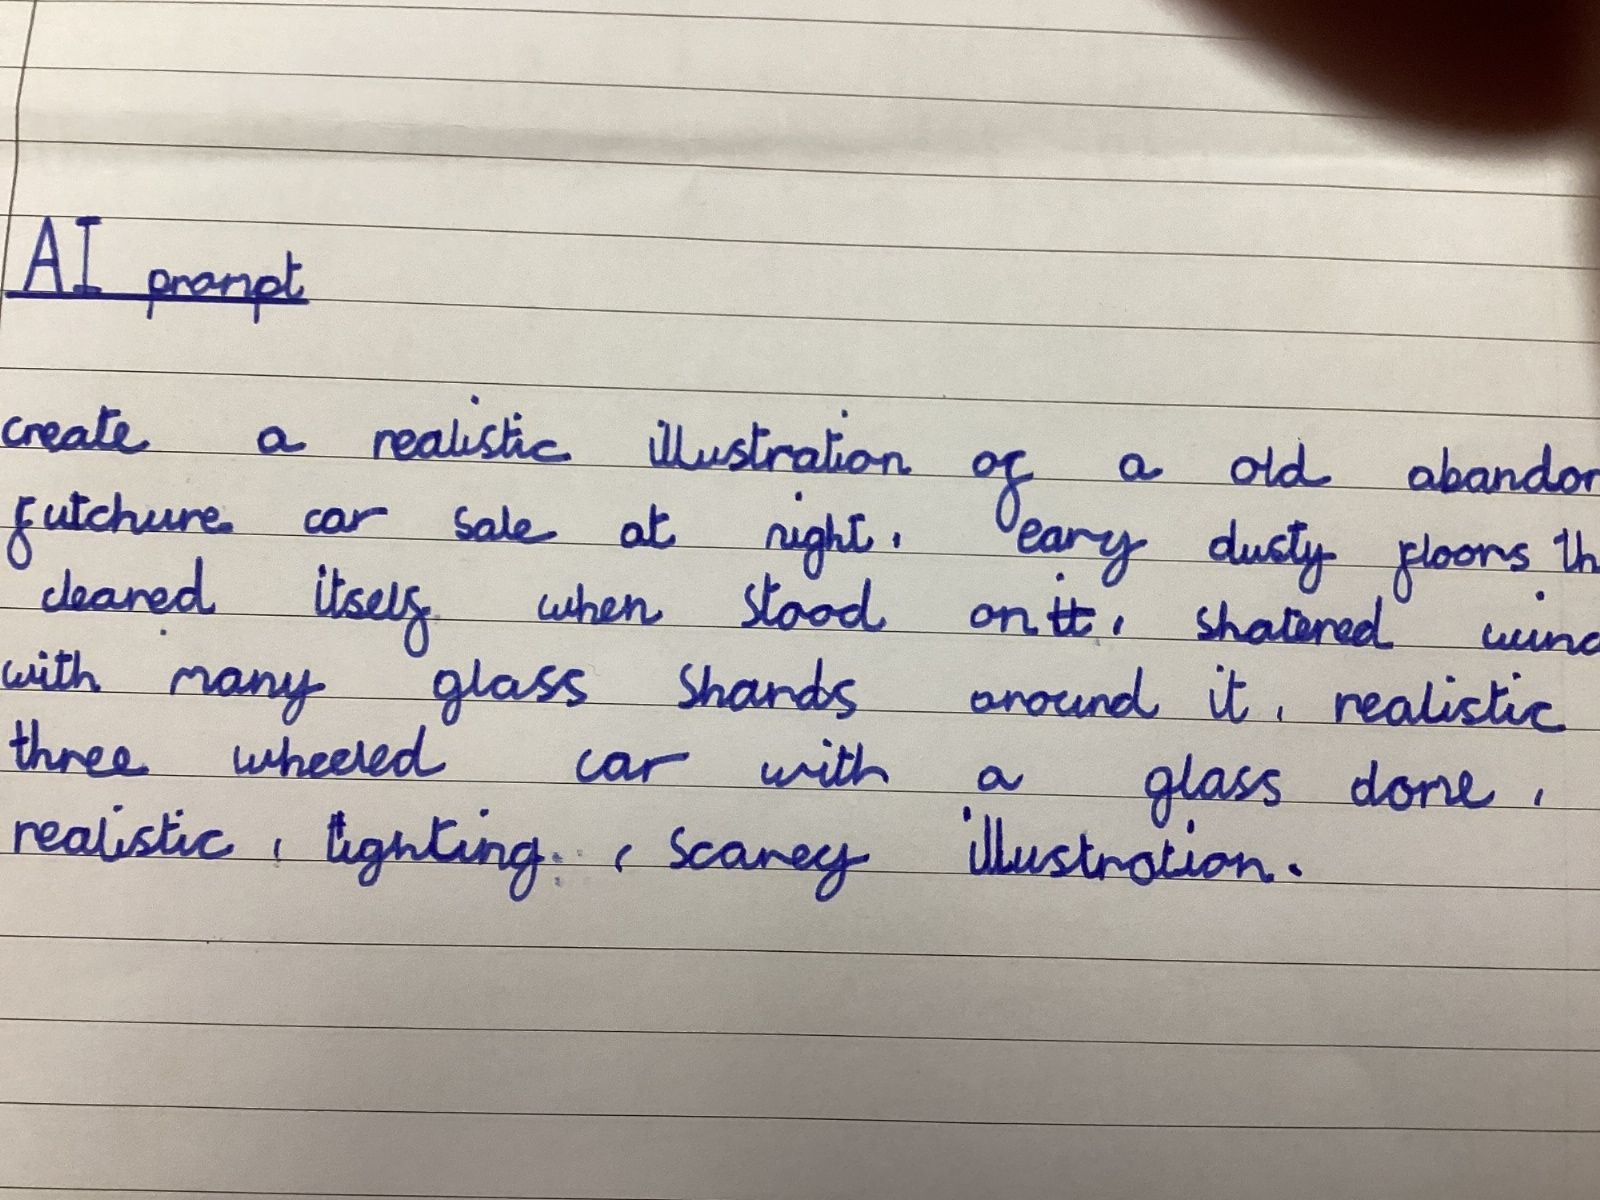 AI prompt
create a realistic illustration of a old abandon
futchure car sale at night, eary dusty floors th
cleared itself when stood on it, shatered wind
with many glass shards around it, realistic
three wheeled car with a glass dome,
realistic, lighting, scarey illustration.